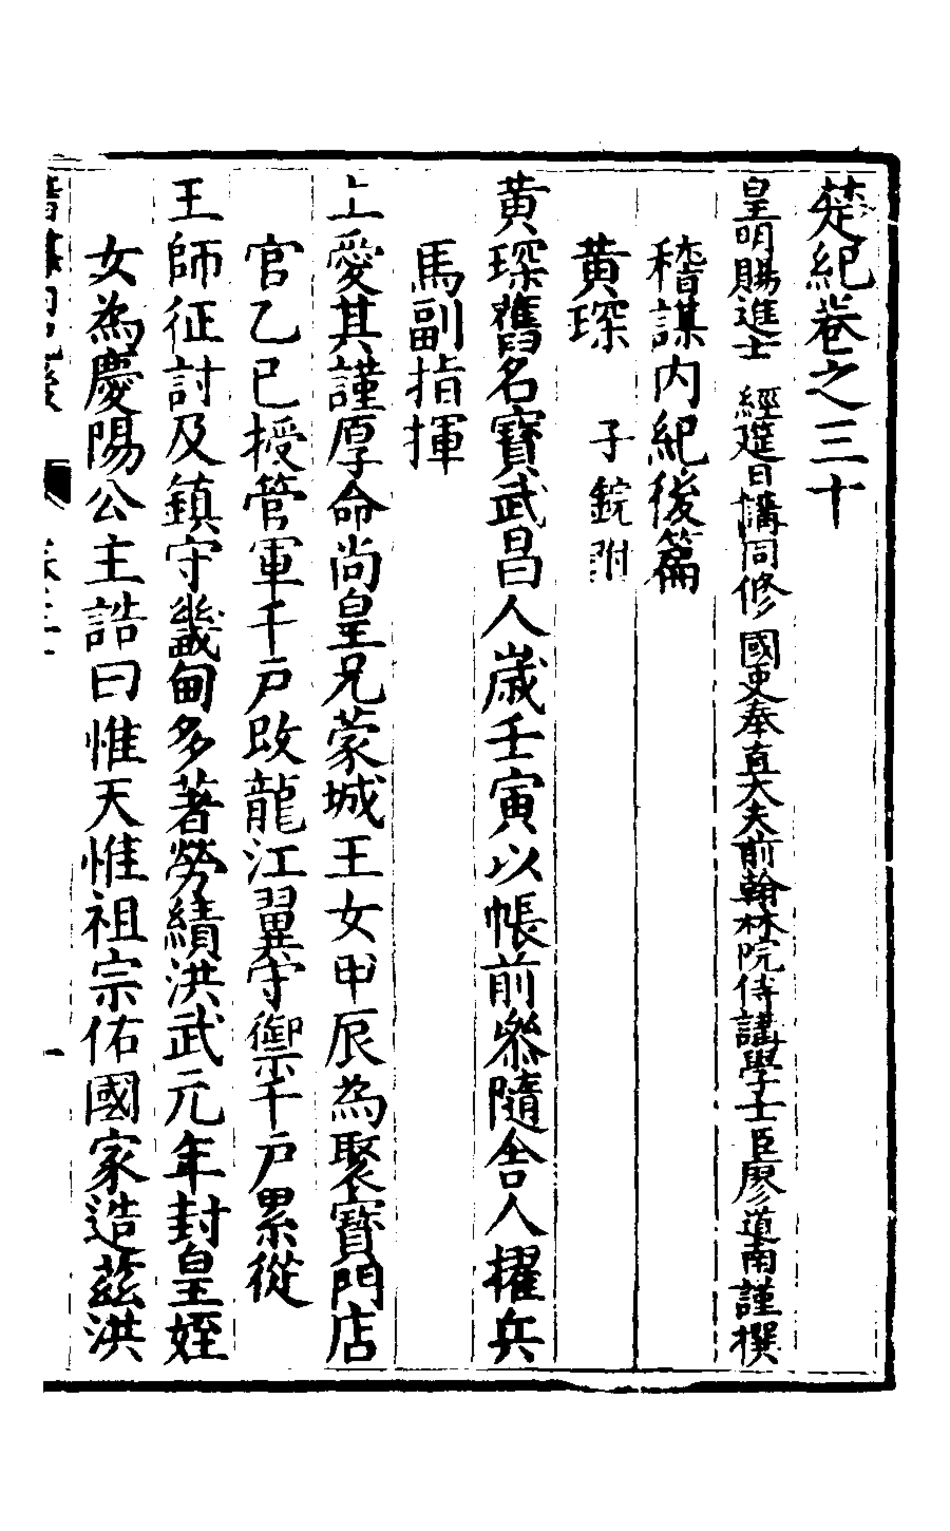 楚紀卷之三十
皇明賜進士 經筵日講同修 國史奉直大夫前翰林院侍講學士臣廖道南謹撰
稽謀內紀後篇
黃琛 子鋎附
黃琛舊名寶武昌人歲壬寅以帳前叅隨舍人擢兵
馬副指揮
上愛其謹厚命尚皇兄蒙城王女甲辰為聚寶門店
官乙巳授管軍千戶改龍江翼守禦千戶累從
王師征討及鎮守畿甸多著勞績洪武元年封皇姪
女為慶陽公主誥曰惟天惟祖宗佑國家造茲洪